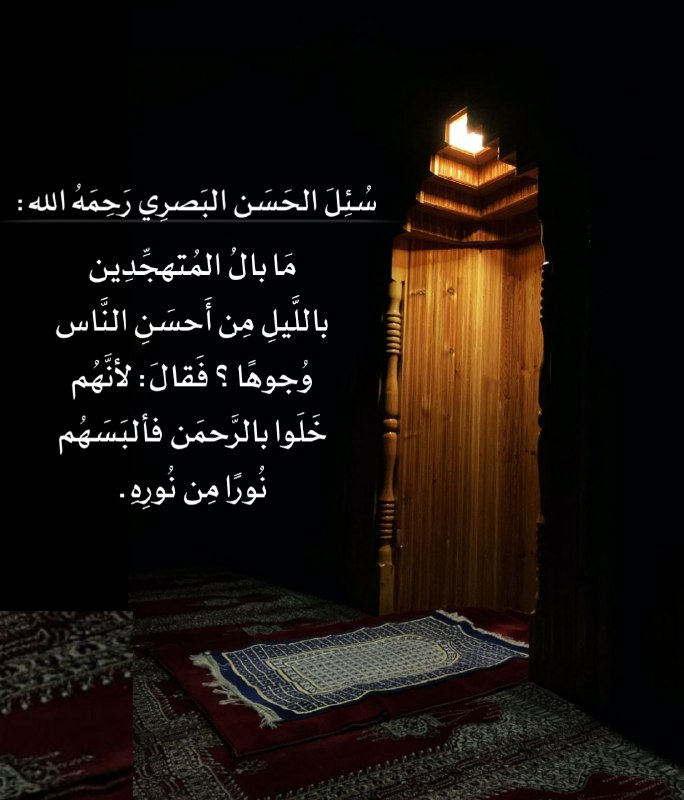 سُئِلَ الحَسَن البَصرِي رَحِمَهُ الله :
مَا بالُ المُتهجِّدِين
باللَّيلِ مِن أَحسَنِ النَّاس
وُجوهًا ؟ فَقالَ: لأنَّهُم
خَلَوا بالرَّحمَن فألبَسَهُم
نُورًا مِن نُورِهِ .